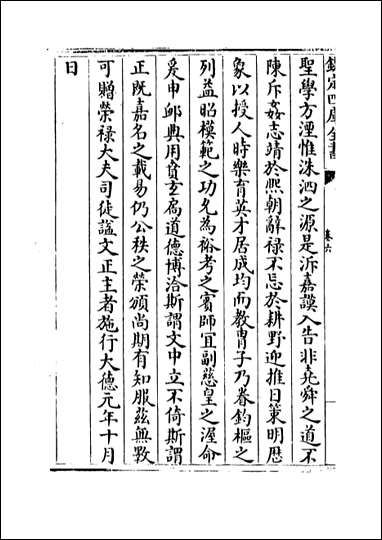 欽定四庫全書
卷六
聖學方湮惟洙泗之源是泝嘉謨入告非堯舜之道不
陳斥姦志靖於熙朝辭祿不忘於耕野迎推日策明厯
象以授人時樂育英才居成均而教胄子乃眷鈞樞之
列益昭模範之功允為裕考之賓師宜副慈皇之渥命
爰申卹典用賁玄扃道德博洽斯謂文中立不倚斯謂
正既嘉名之載易仍公秩之榮頒尚期有知服茲無斁
可贈榮祿大夫司徒諡文正主者施行大德元年十月
日